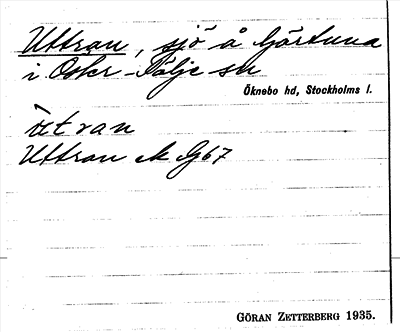 Uttran, sjö å Gärtuna
i Öster-Tälje sn
Öknebo hd, Stockholms l.
ùt ran
Uttran ek G67
GÖRAN ZETTERBERG 1935.